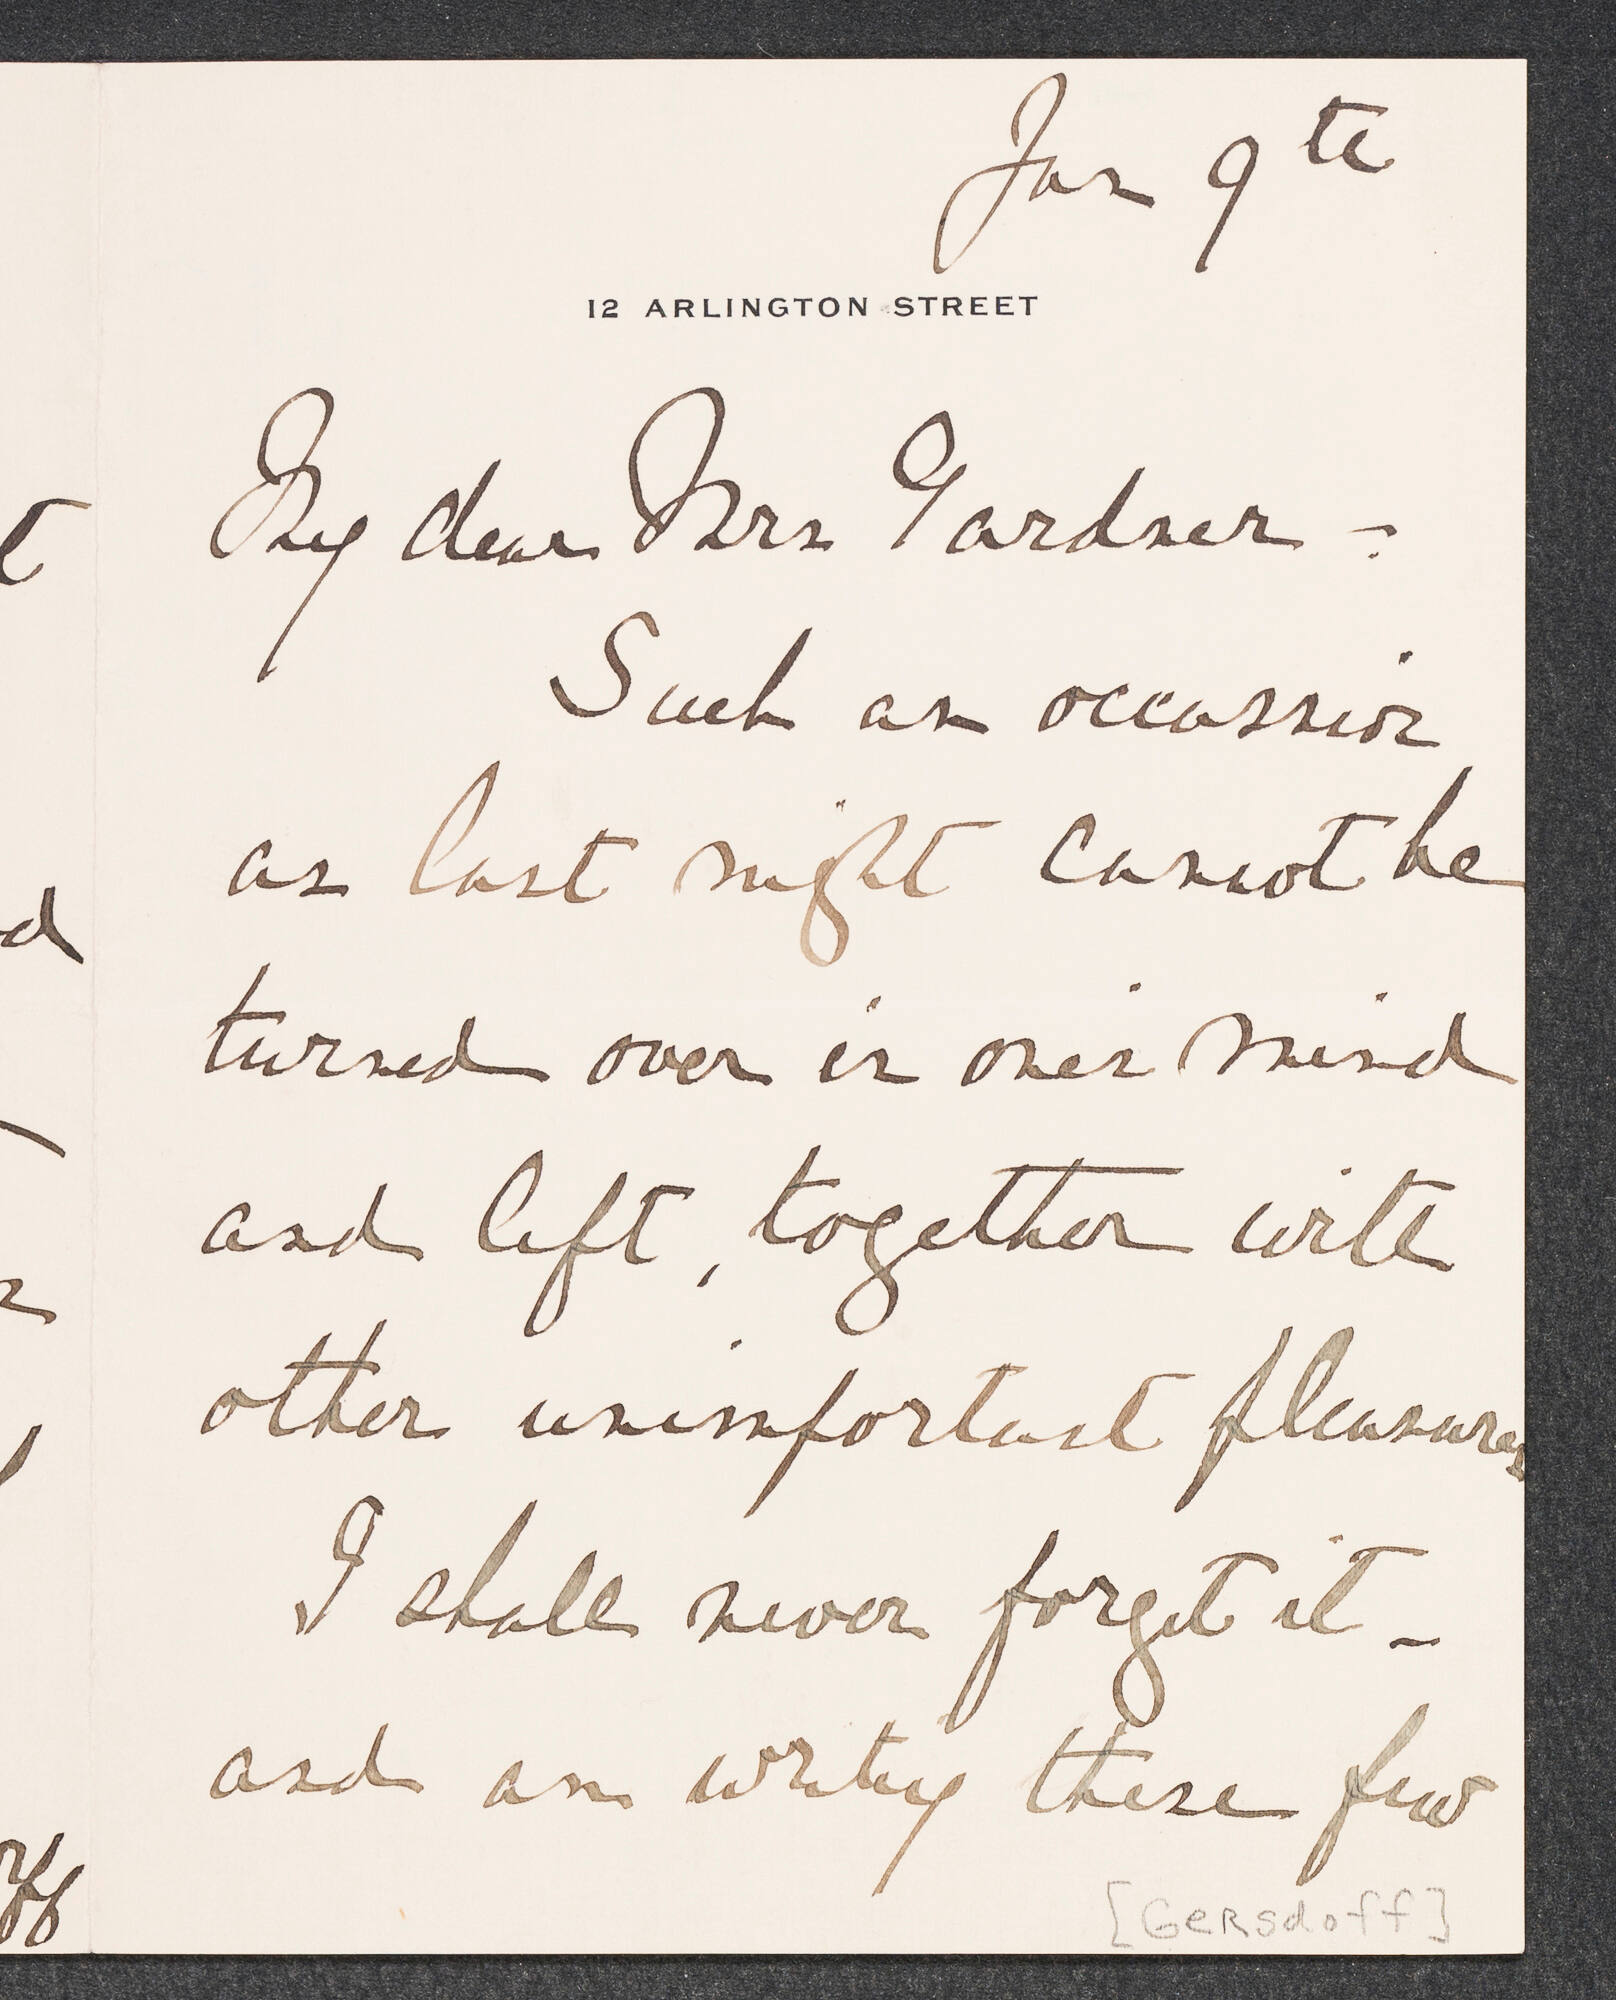 Jan 9th
12 ARLINGTON STREET
My dear Mrs Gardner -
Such an occassion
as last night cannot be
turned over in ones mind
and left, together with
other unimportant pleasures
I shall never forget it -
and am writing these few
[Gersdoff]